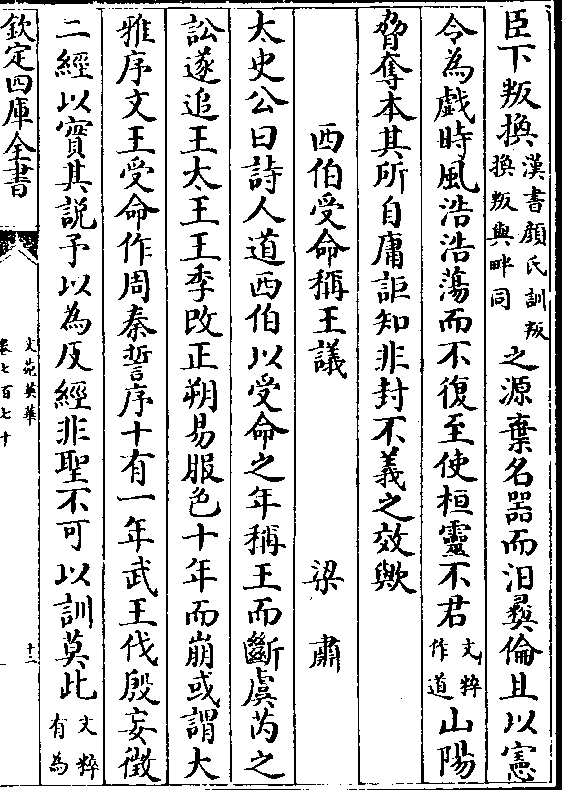 臣下叛換漢書顔氏訓叛換叛與畔同之源棄名器而汨彞倫且以憲
令為戯時風浩浩蕩而不復至使桓靈不君文粹作道山陽
脅奪本其所自庸詎知非封不義之效歟
西伯受命稱王議 梁肅
太史公曰詩人道西伯以受命之年稱王而斷虞芮之
訟遂追王太王王季改正朔易服色十年而崩或謂大
雅序文王受命作周泰誓序十有一年武王伐殷妄徴
二經以實其說予以為反經非聖不可以訓莫此文粹有為
欽定四庫全書
文苑英華
卷七百七十
十二